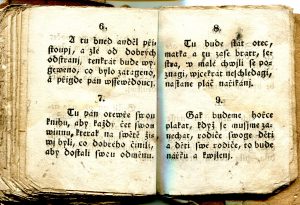 6.
A tu hned anděl při=
stoupj, a zlé od dobrých
odstranj, tenkrát bude wy=
geweno, co bylo zatageno,
a přigde pán wssewědoucý.
7.
Tu pán otewře swou
knihu, aby každý čet swou
winnu, kterak na swětě ži=
wj byli, co dobrého činili,
aby dostali swou odměnu.
8.
Tu bude stát otec,
matka a tu zase bratr, se=
stra, w malé chwjli se po=
znagj, wjcekrát neshledagj,
nastane pláč nařjkánj.
9.
Gak budeme hořce
plakat, když ge musyme za=
nechat, rodiče swoge děti
a děti swé rodiče, to bude
nářku a kwjlenj.